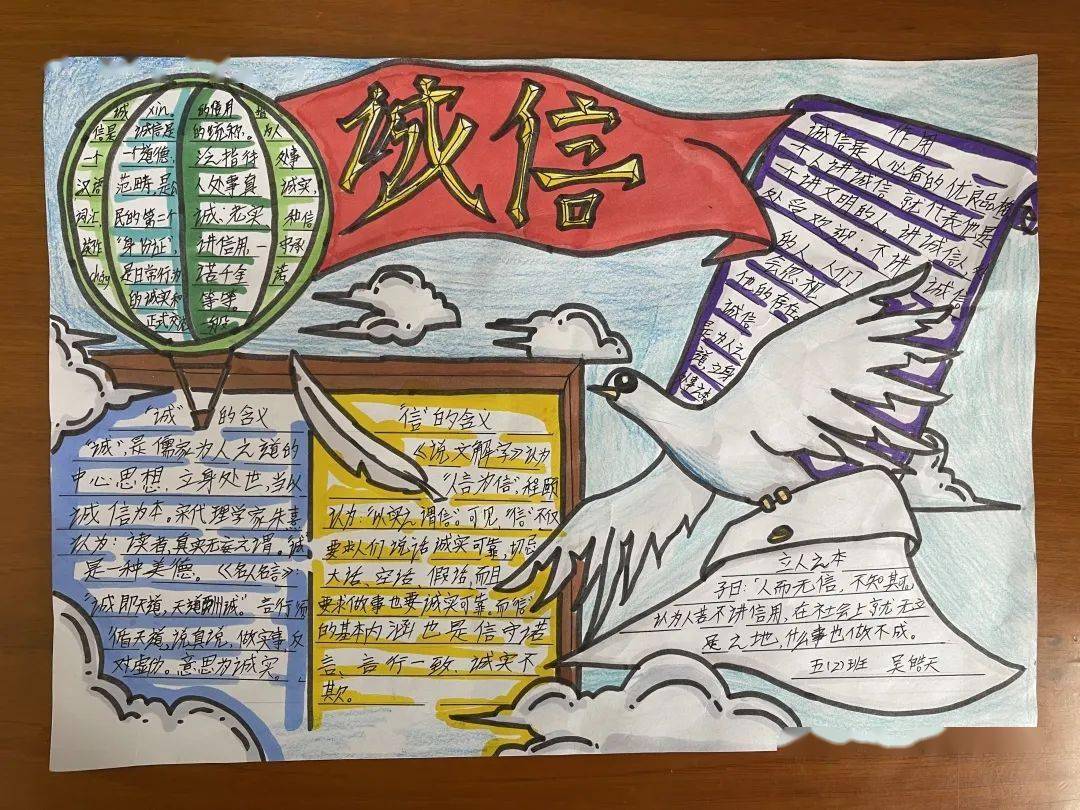 诚信
诚 xín。 的信用
信是 诚信是 的统称。 的人
一个 一个道德 泛指待 处事
汉语 范畴,是公 人处事真 诚实,
词汇, 民的第二个 诚、老实 种信
读作 “身份证”, 讲信用,一 守承
chéng 是日常行为 诺千金 诺
的诚实和 等等。
正式交
作用
诚信是人必备的优良品格
一个人讲诚信,就代表他是
一个讲文明的人。讲诚信人
处处受欢迎;不讲诚信
的人,人们
会忽视
他的存在。
诚信
是为人之
道,立身
“诚”的含义
“诚”是儒家为人之道的
中心思想,立身处世,当以
诚信为本。宋代理学家朱熹
认为:诚者,真实无妄之谓。诚
是一种美德。《名人名言》:
“诚即天道,天道酬诚”。言行须
循天道,说真话,做实事,反
对虚伪。意思为诚实。
“信”的含义
《说文解字》认为
“人言为信”,程颐
认为:“以实之谓信”。可见,“信”不仅
要求人们说话诚实可靠,切忌
大话、空话、假话,而且
要求做事也要诚实可靠。而“信”
的基本内涵也是信守诺
言、言行一致、诚实不
欺。
立人之本
子曰:“人而无信,不知其可。”
认为人若不讲信用,在社会上就无立
足之地,什么事也做不成。
五(2)班 吴皓天